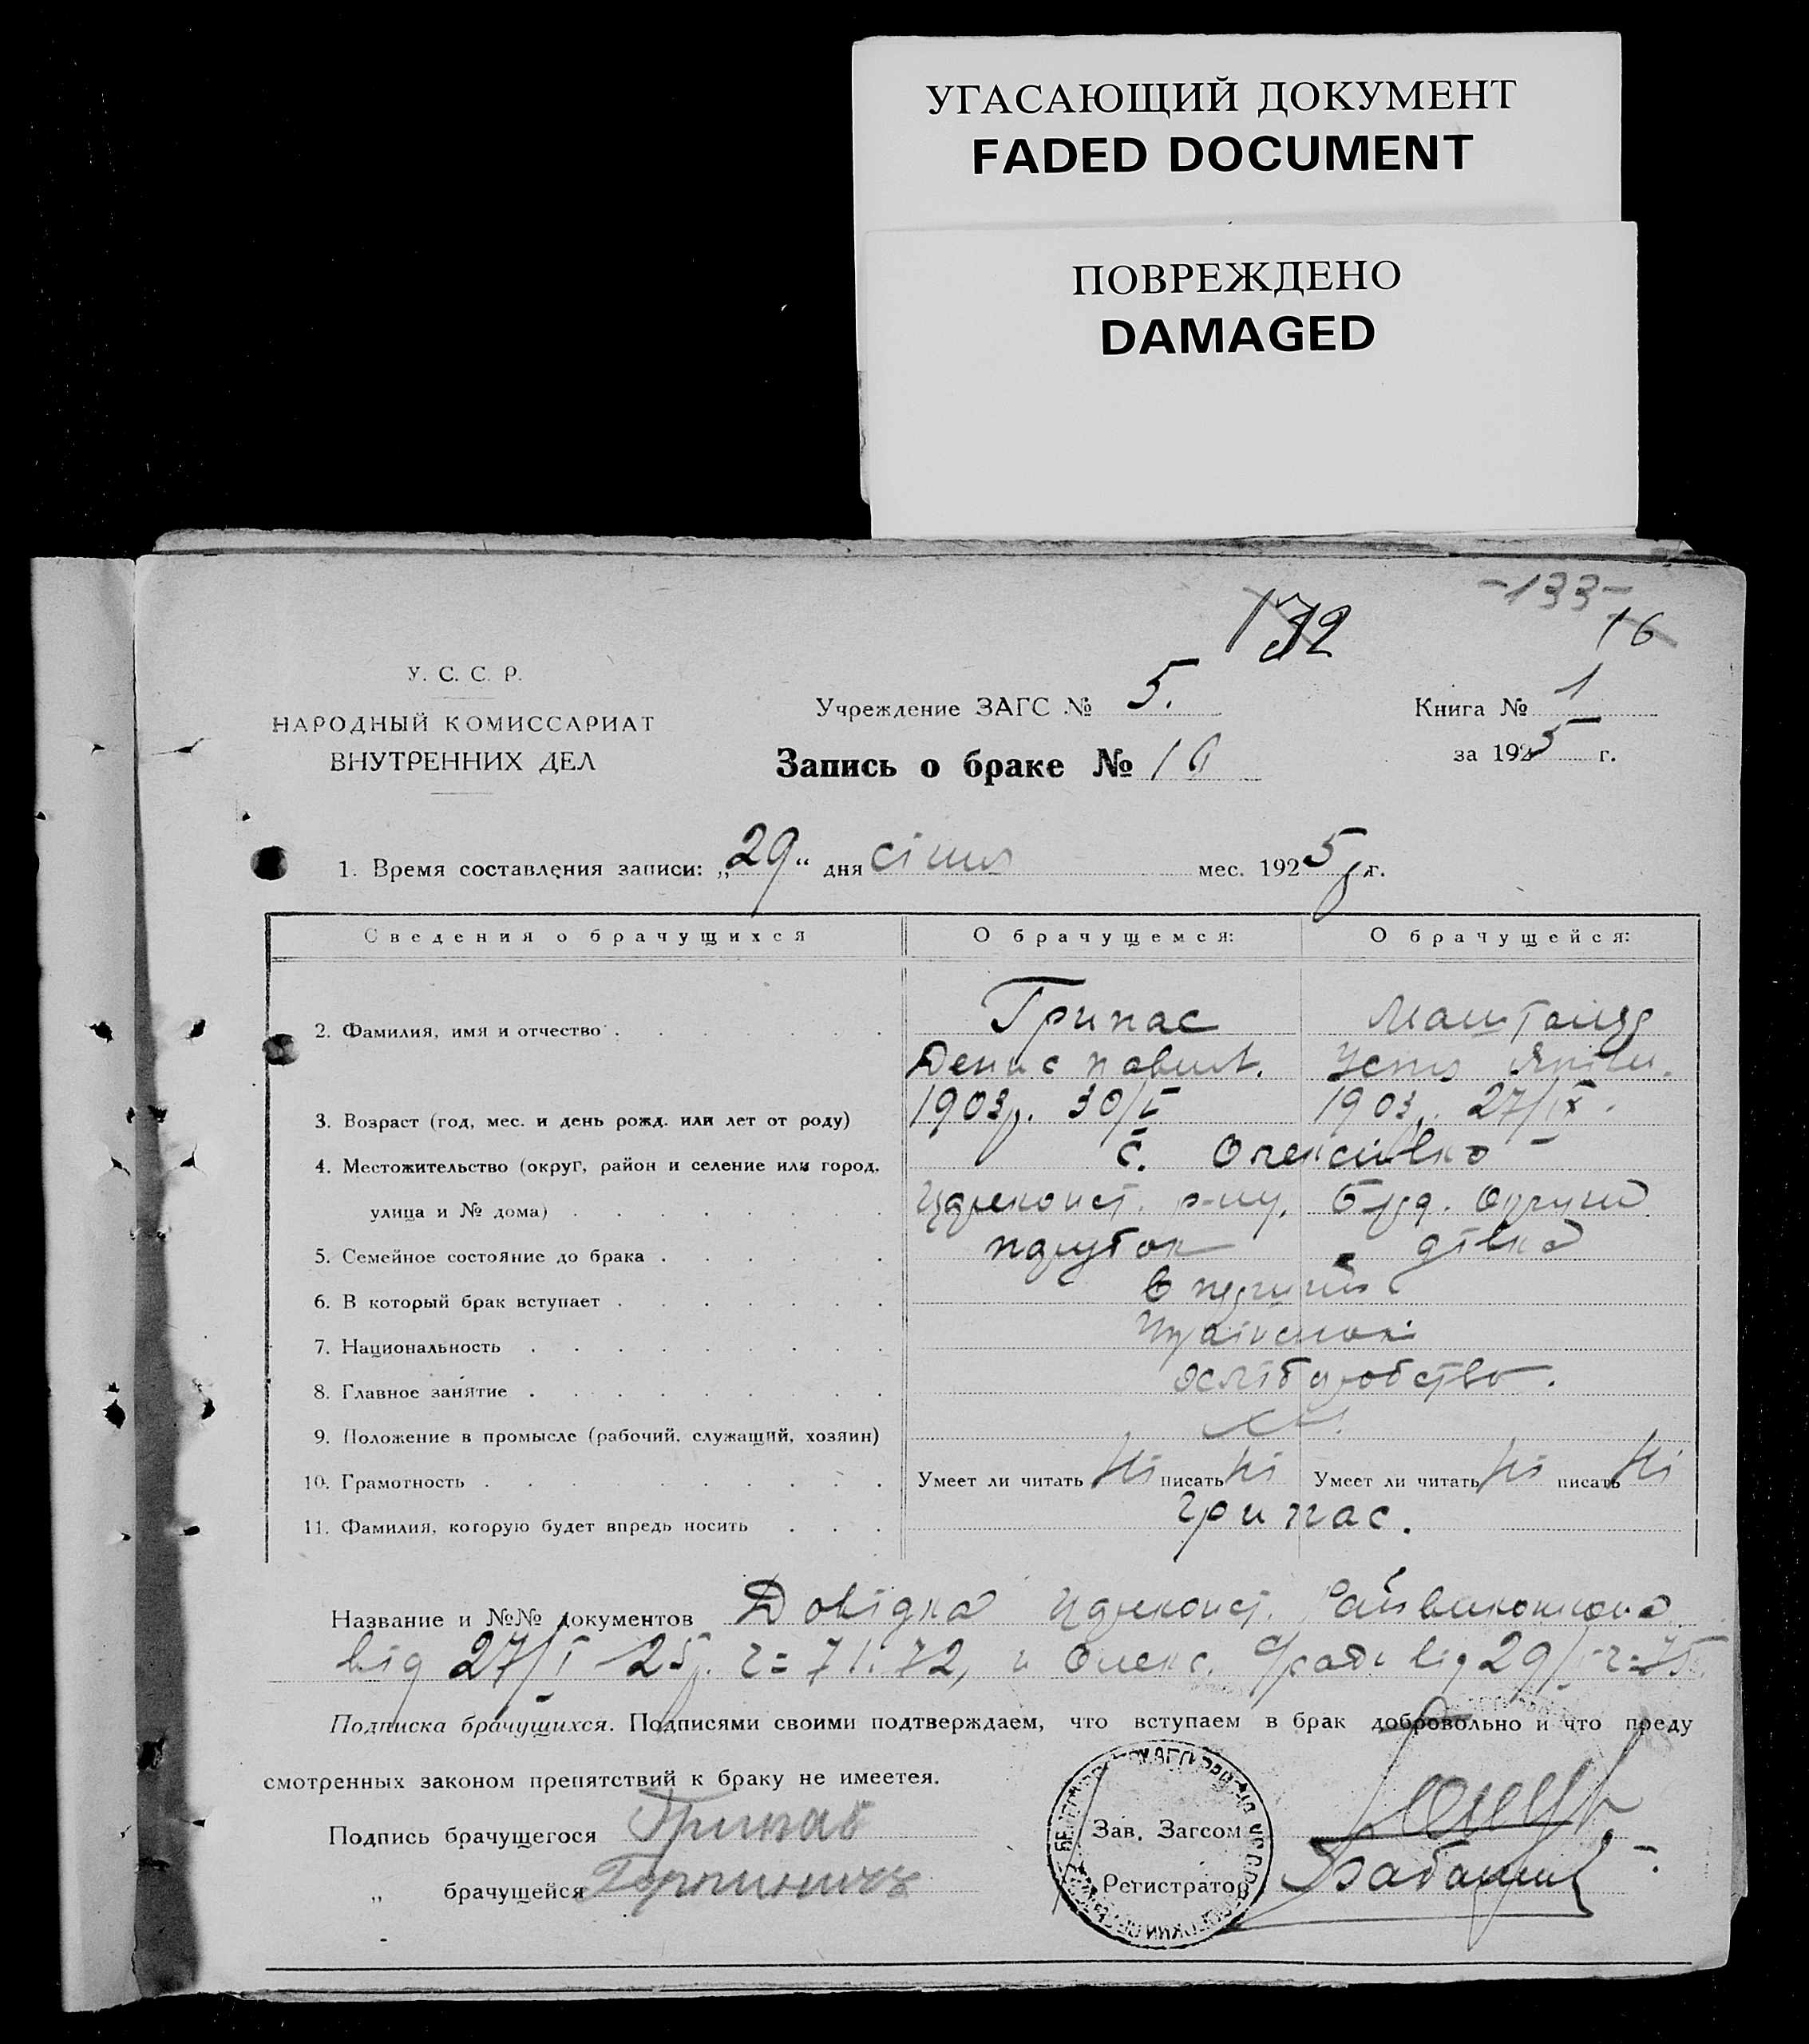 УГАСАЮЩИЙ ДОКУМЕНТ
FADED DOCUMENT
ПОВРЕЖДЕНО
DAMAGED
-133-
132
16
У. С. С. Р.
НАРОДНЫЙ КОМИССАРИАТ
ВНУТРЕННИХ ДЕЛ
Учреждение ЗАГС № 5.
Книга № 1
за 1925 г.
Запись о браке № 16
1. Время составления записи: „29“ дня січня мес. 1925 р. г.
Сведения о брачущихся О брачущемся: О брачущейся:
2. Фамилия, имя и отчество Грипас
Денис Павлов.
3. Возраст (год, мес. и день рожд. или лет от роду) 1903р. 1903р. 27/IX.
4. Местожительство (округ, район и селение или город, с. Олексіївка
улица и № дома) р-ну, Округи
5. Семейное состояние до брака парубок дівка
6. В который брак вступает в перший
7. Национальность
8. Главное занятие хліборобство.
9. Положение в промысле (рабочий, служащий, хозяин)
10. Грамотность Умеет ли читать Ні писать Ні Умеет ли читать Ні писать Ні
11. Фамилия, которую будет впредь носить Грипас.
Название и №№ документов Довідка Райвиконкома
від 27/I 25р. ч= 71.72, и Олекс. с/ради від 29/I ч=75.
Подписка брачущихся. Подписями своими подтверждаем, что вступаем в брак добровольно и что преду
смотренных законом препятствий к браку не имеетея.
Подпись брачущегося Грипас
„ брачущейся
Зав. Загсом
Регистратор